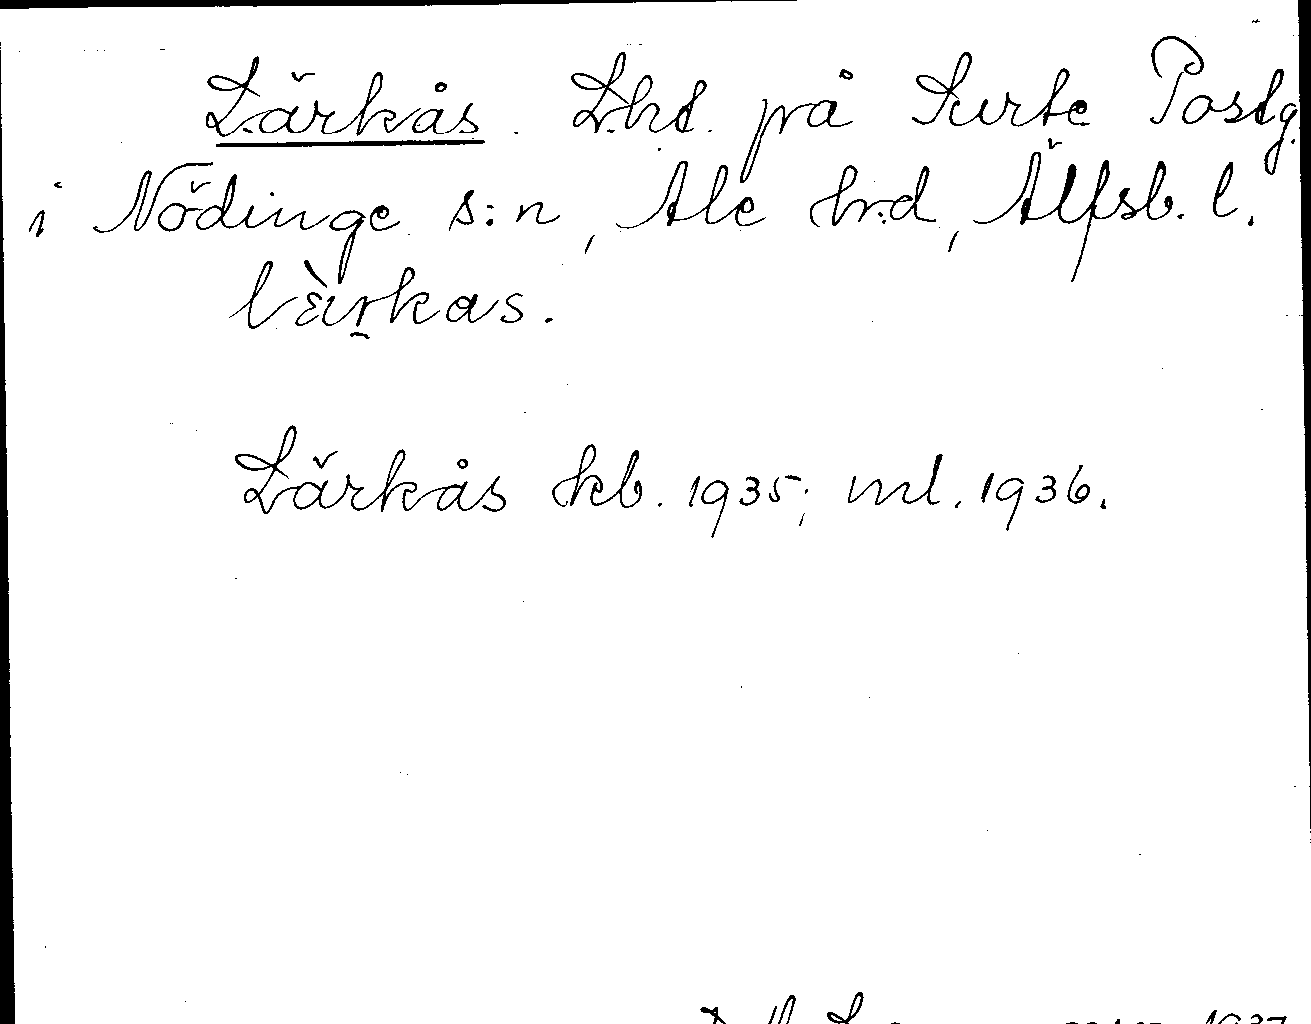 Lärkås. Lht. på Surte Postg.
i Nödinge s:n, Ale hrd, Älfsb. l.
lὲṛkas.
Lärkås kb. 1935; ml. 1936.
1937